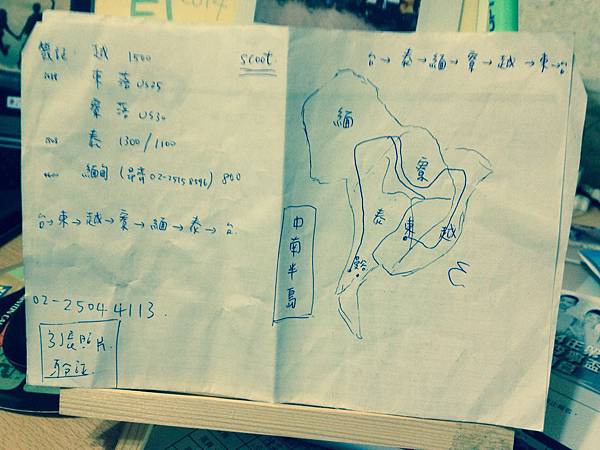 簽証 越 1500
東 落 US25
寮 落 US30
泰 1300/1100
緬甸 (02-2515 8596) 800
台→東→越→寮→緬→泰→台
02-2504 4113
照片
scoot
台→泰→緬→寮→越→東→台
緬
寮
泰
東
越
中南半島